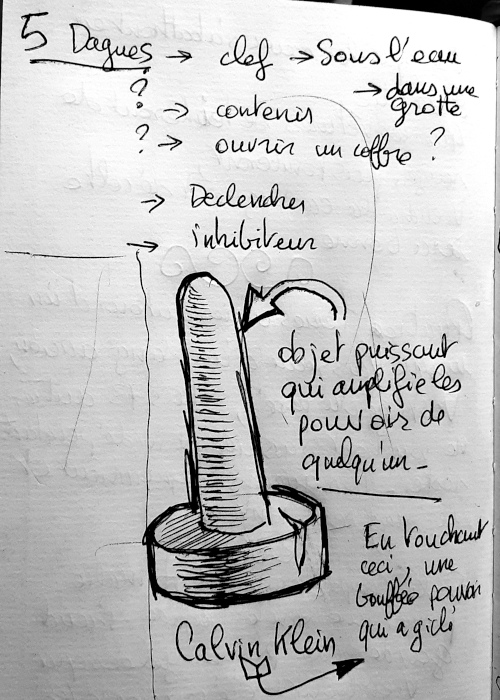 5 Dagues → clef → Sous l'eau
→ dans une
grotte
?
? → contenir
? → ouvrir un coffre ?
→ Declencher
→ inhibiteur
objet puissant
qui amplifie les
pouvoir de
quelqu'un_
En touchant
ceci, une
bouffée pouvoir
qui a giclé
Calvin Klein